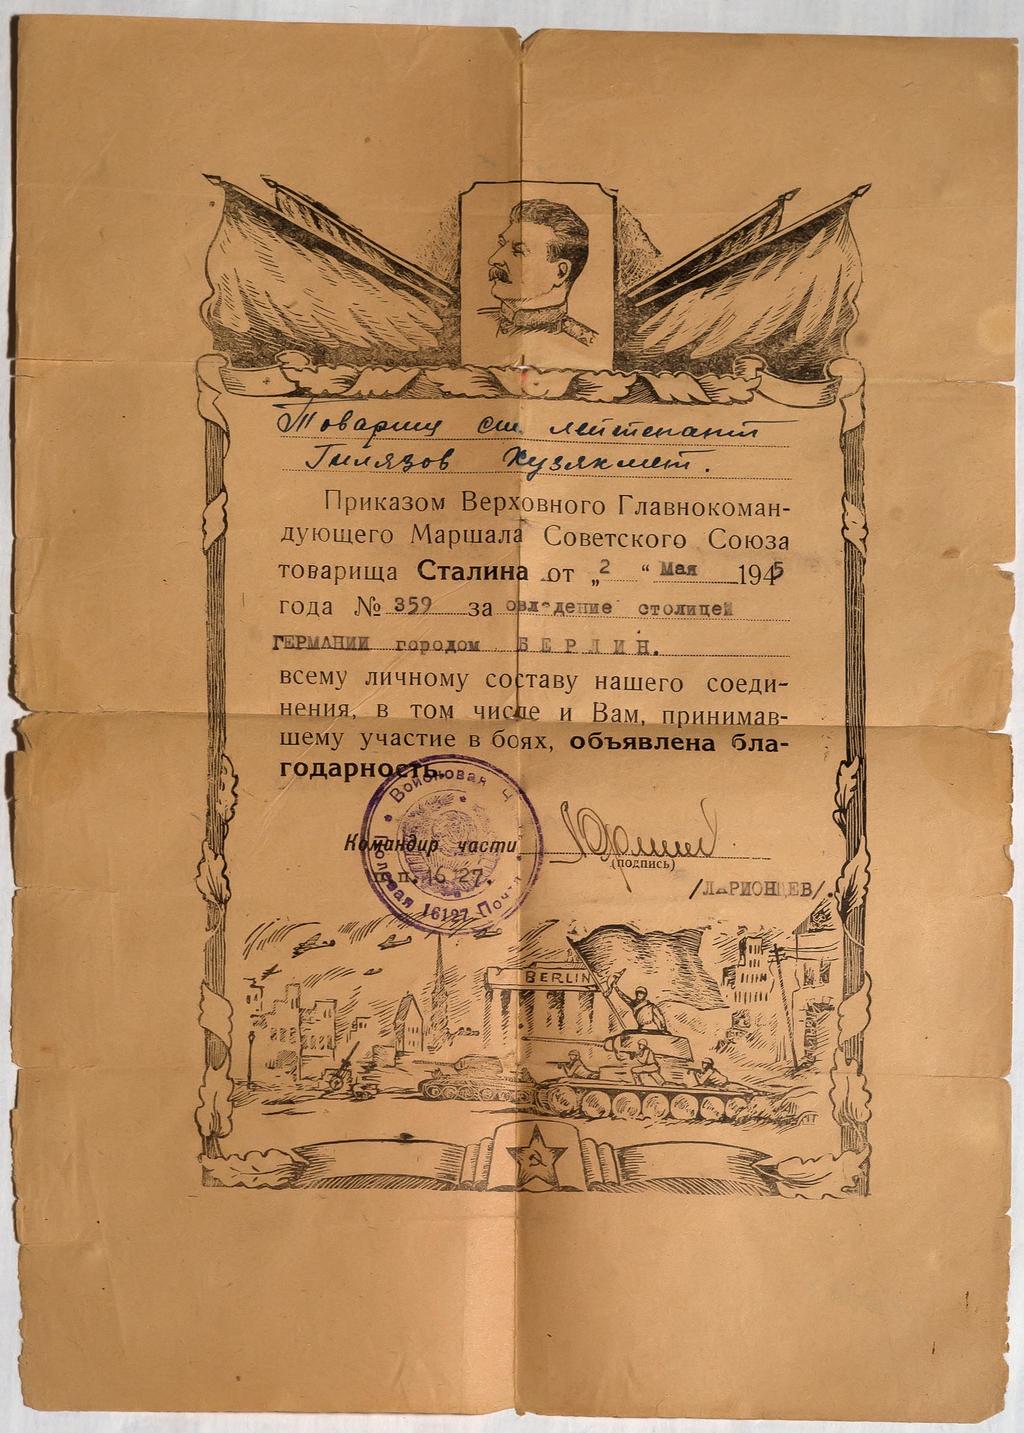 Товарищ ст. лейтенант
Гилязов Хузяхмет.
Приказом Верховного Главнокоман-
дующего Маршала Советского Союза
товарища Сталина от „2 “ Мая 1945
года № 359 за овладение столицей
ГЕРМАНИИ городом БЕРЛИН.
всему личному составу нашего соеди-
нения, в том числе и Вам, принимав-
шему участие в боях, объявлена бла-
годарность.
Войсковая Ч
Командир части
(подпись)
п.п. 16127.
Полевая Почта 16127
/ЛАРИОНЦЕВ/.
BERLIN